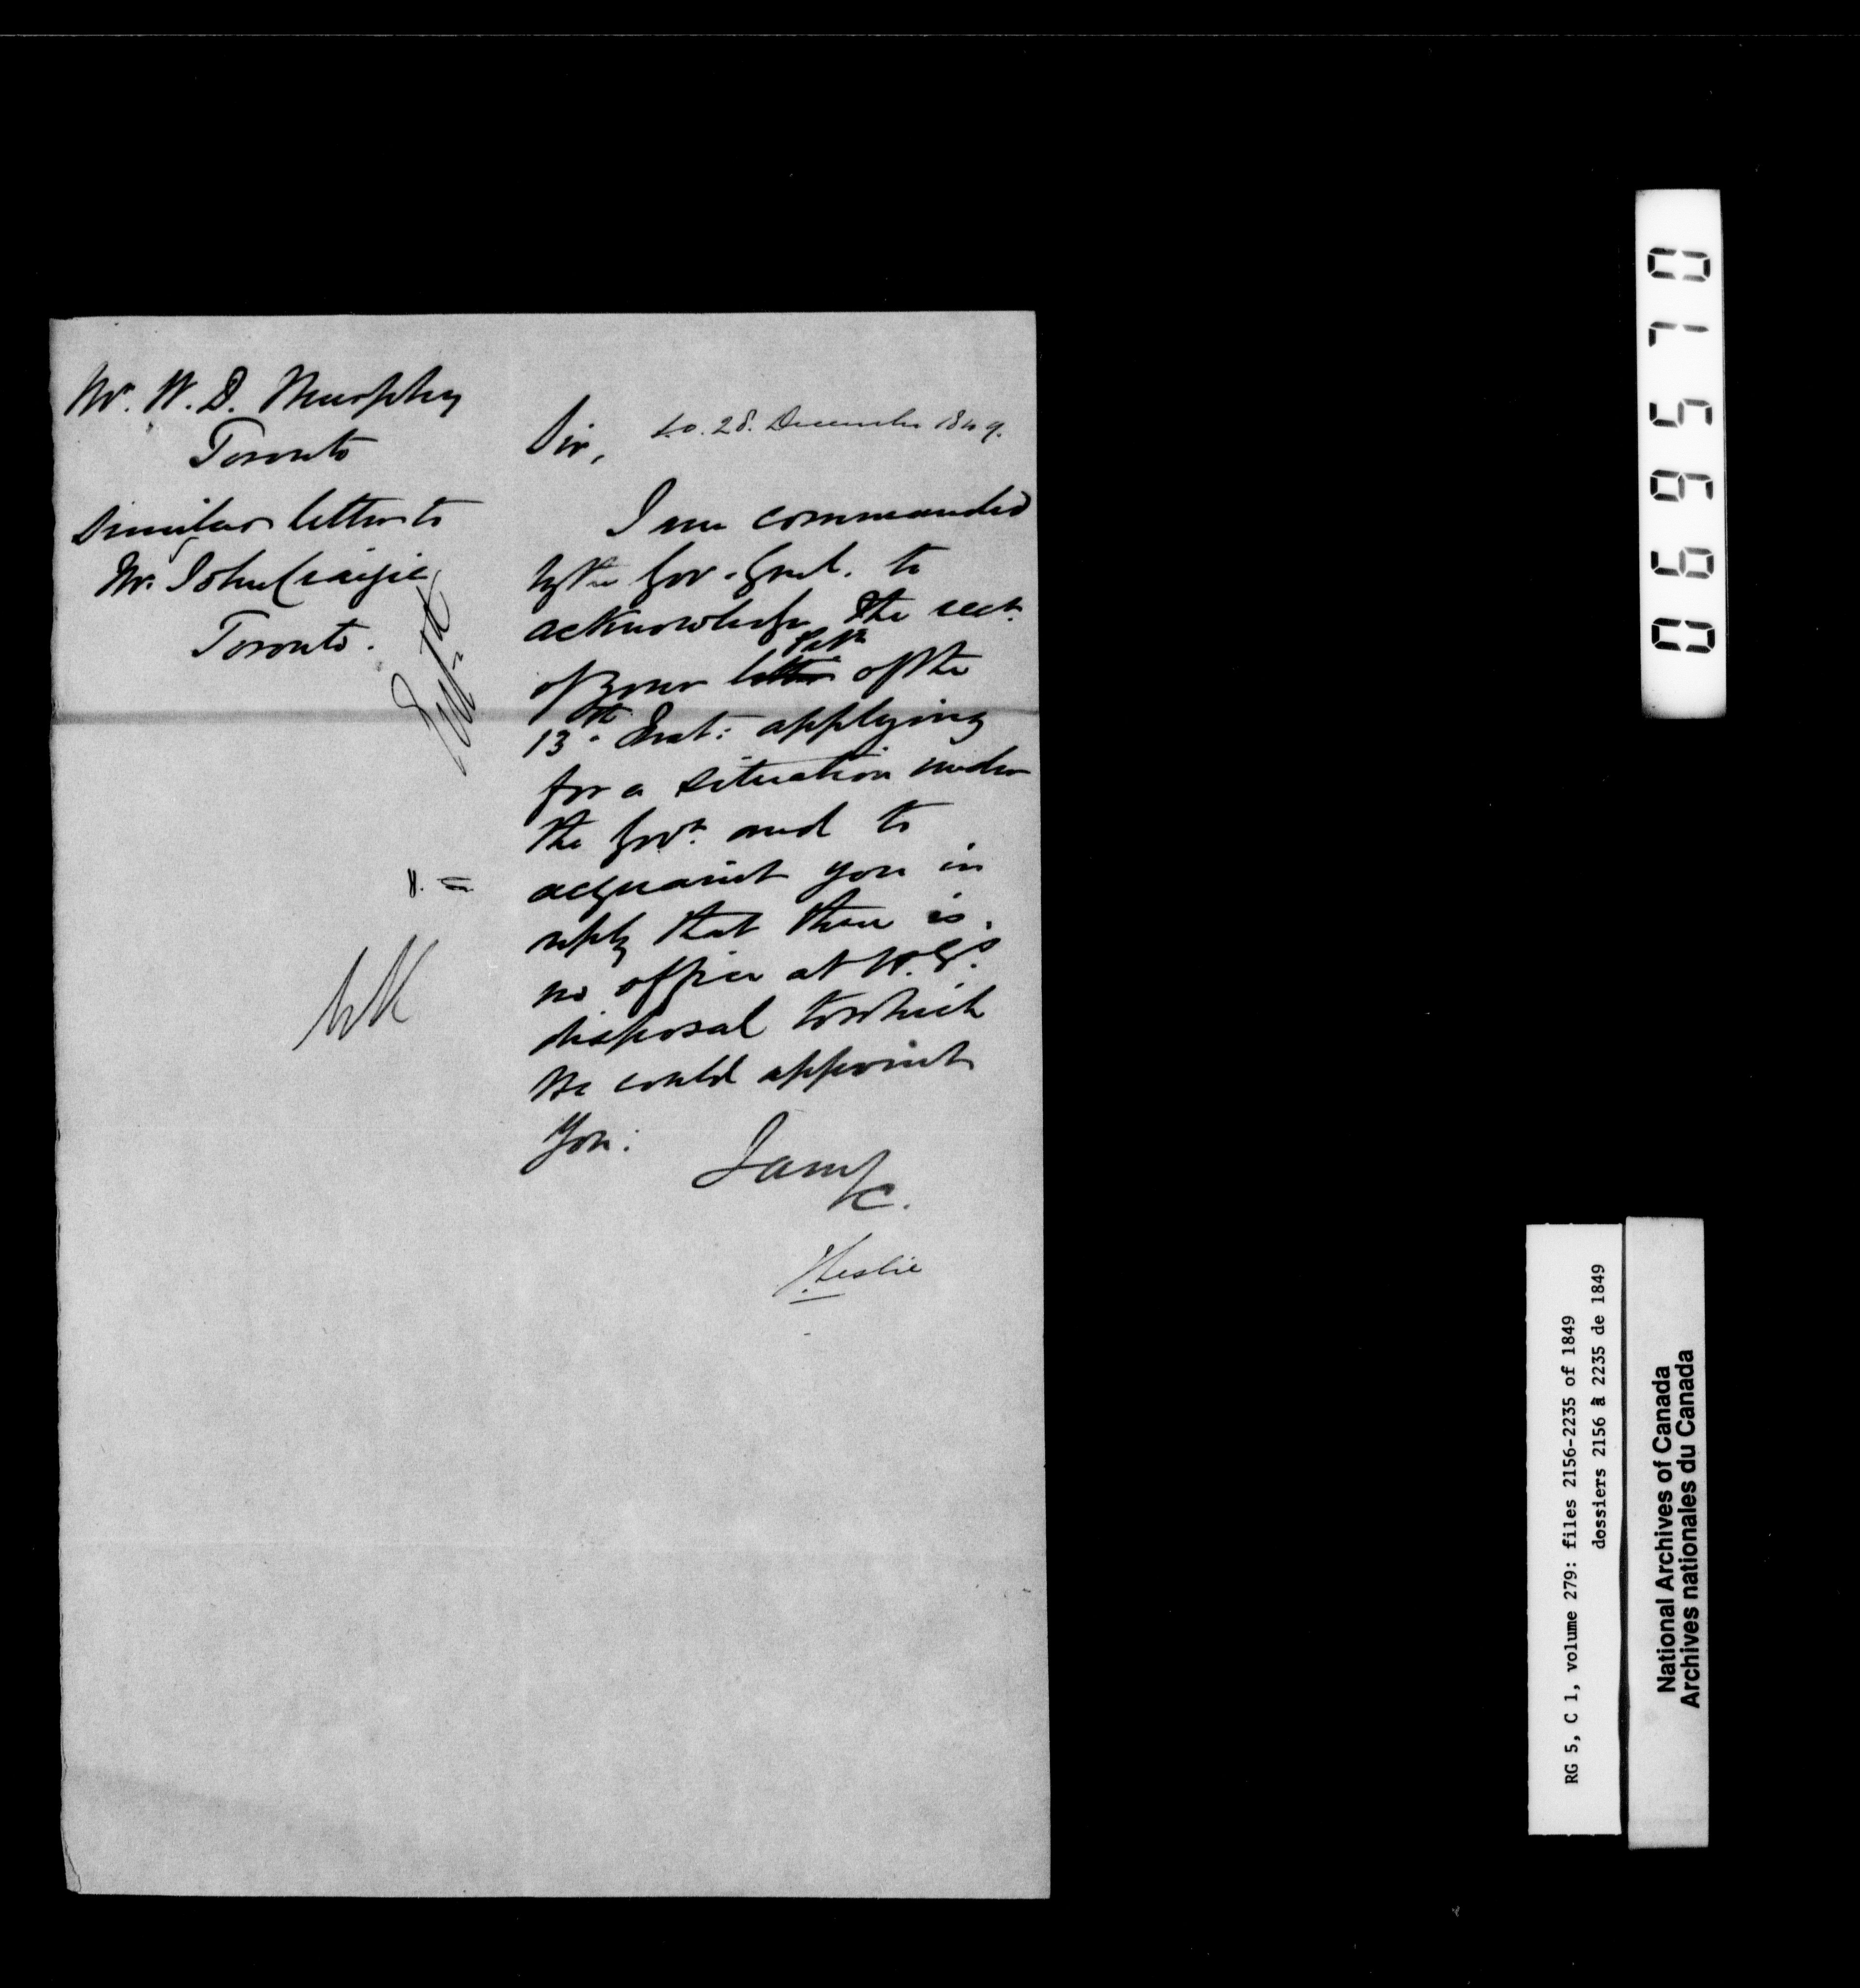 Mr. W. D. Murphy
Toronto
Similar letter to
Mr. John Craigie
Toronto.
S.O. 28. December 1849.
Sir,
I am commanded
by the Gov. Genl. to
acknowledge the rect.
of your letter Petn of the
13th Inst: applying
for a situation under
the Govt. and to
acquaint you in
reply that there is
no office at H. E's.
disposal to which
He could appoint
you.
I am
&c.
J. Leslie
069570
RG 5, C 1, volume 279: files 2156-2235 of 1849
dossiers 2156 à 2235 de 1849
National Archives of Canada
Archives nationales du Canada